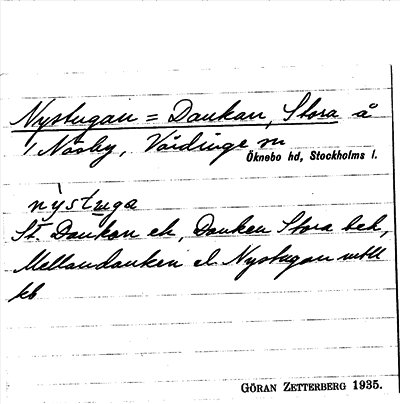 Nystugan = Dankan, Stora å
/ Näsby, Vårdinge sn
Öknebo hd, Stockholms l.
nystuga
St. Dankan ek, Danken Stora bek,
Mellandanken el. Nystugan mtll
kb
GÖRAN ZETTERBERG 1935.